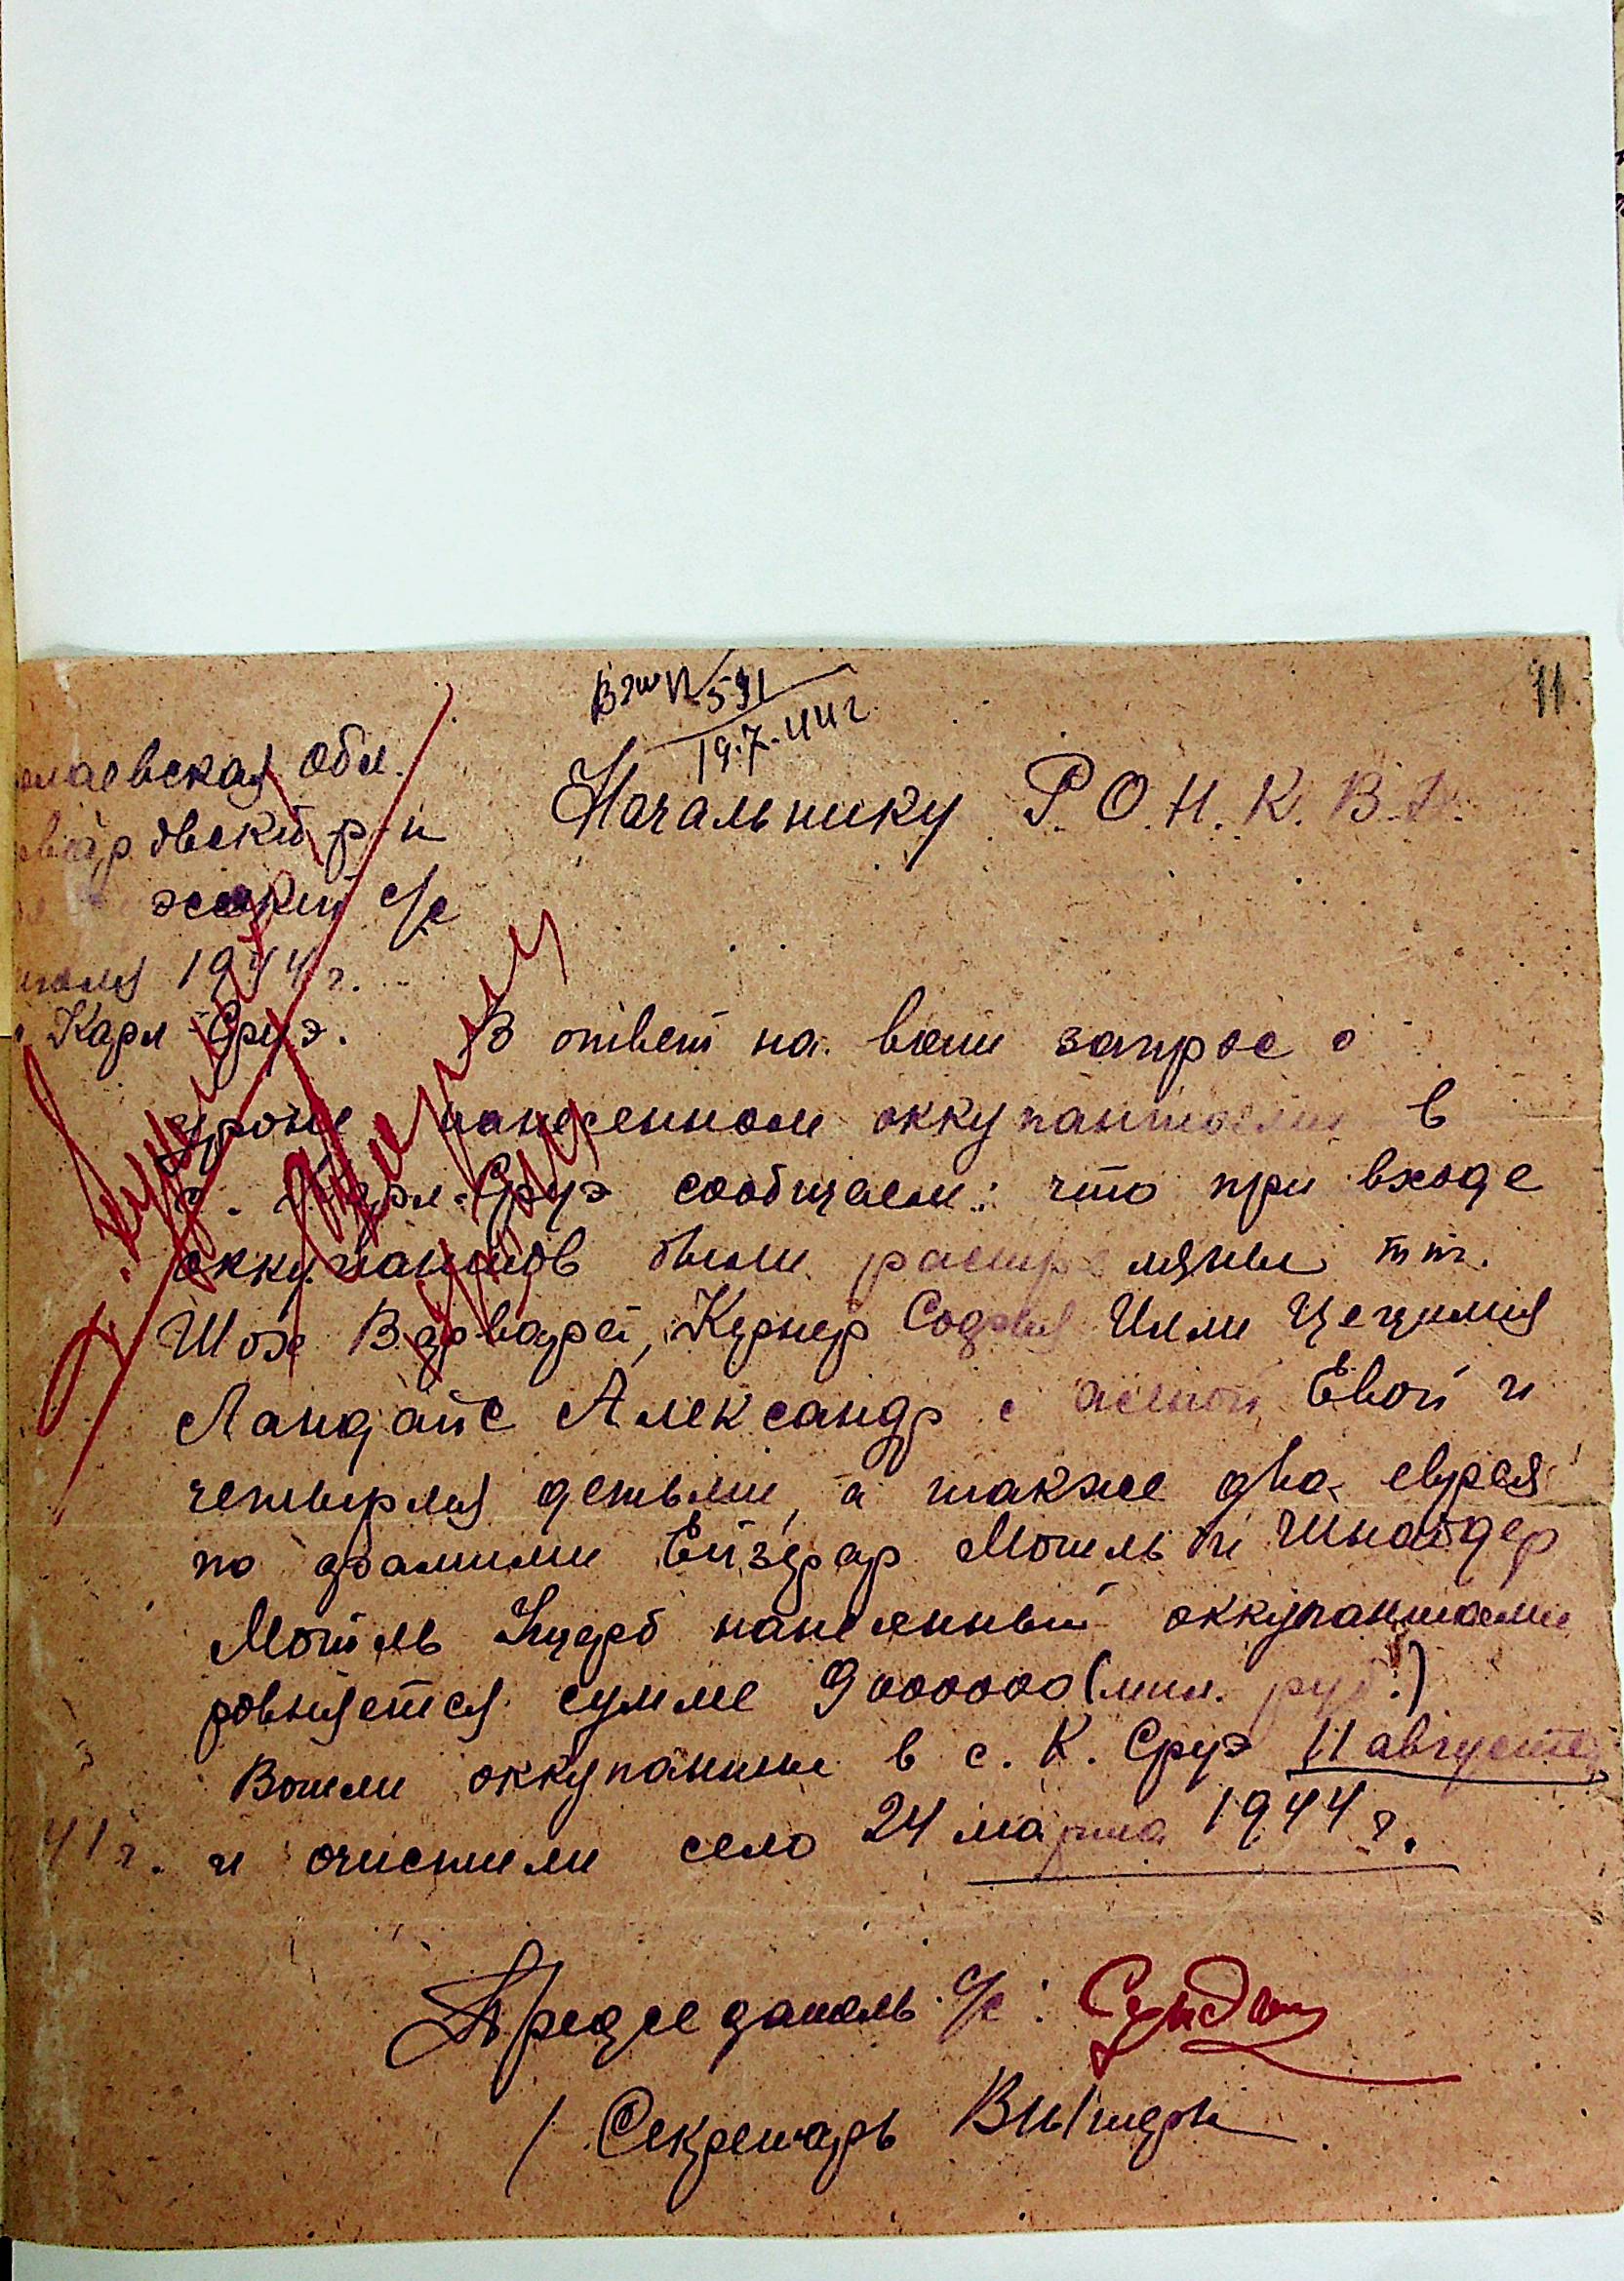 11
Вх №591
19.7.44 г
олаевская обл.
Начальнику Р.О.Н.К.В.Д.
вардовский р-н
с/с
июля 1944 г.
Карл-Сруэ. В ответ на ваш запрос о
уроне нанесенном оккупантами в
с. Карл-Сруэ сообщаем: что при входе
оккупантов были растреляны тт.
Шок Варвара, Кернер София Илли Цецилия
Ландайс Александр с женой Евой и
четырмя детьми, а также два еврея
по фамилии Ейзефар Мотель и Шнайдер
Мотель Ущерб нанесянный оккупантами
ровняется сумме 9000000 (мил. руб.)
Вошли оккупанты в с. К. Сруэ 11 августа
41 г. и очистили село 24 марта 1944 г.
Председатель с/с:
Секретарь